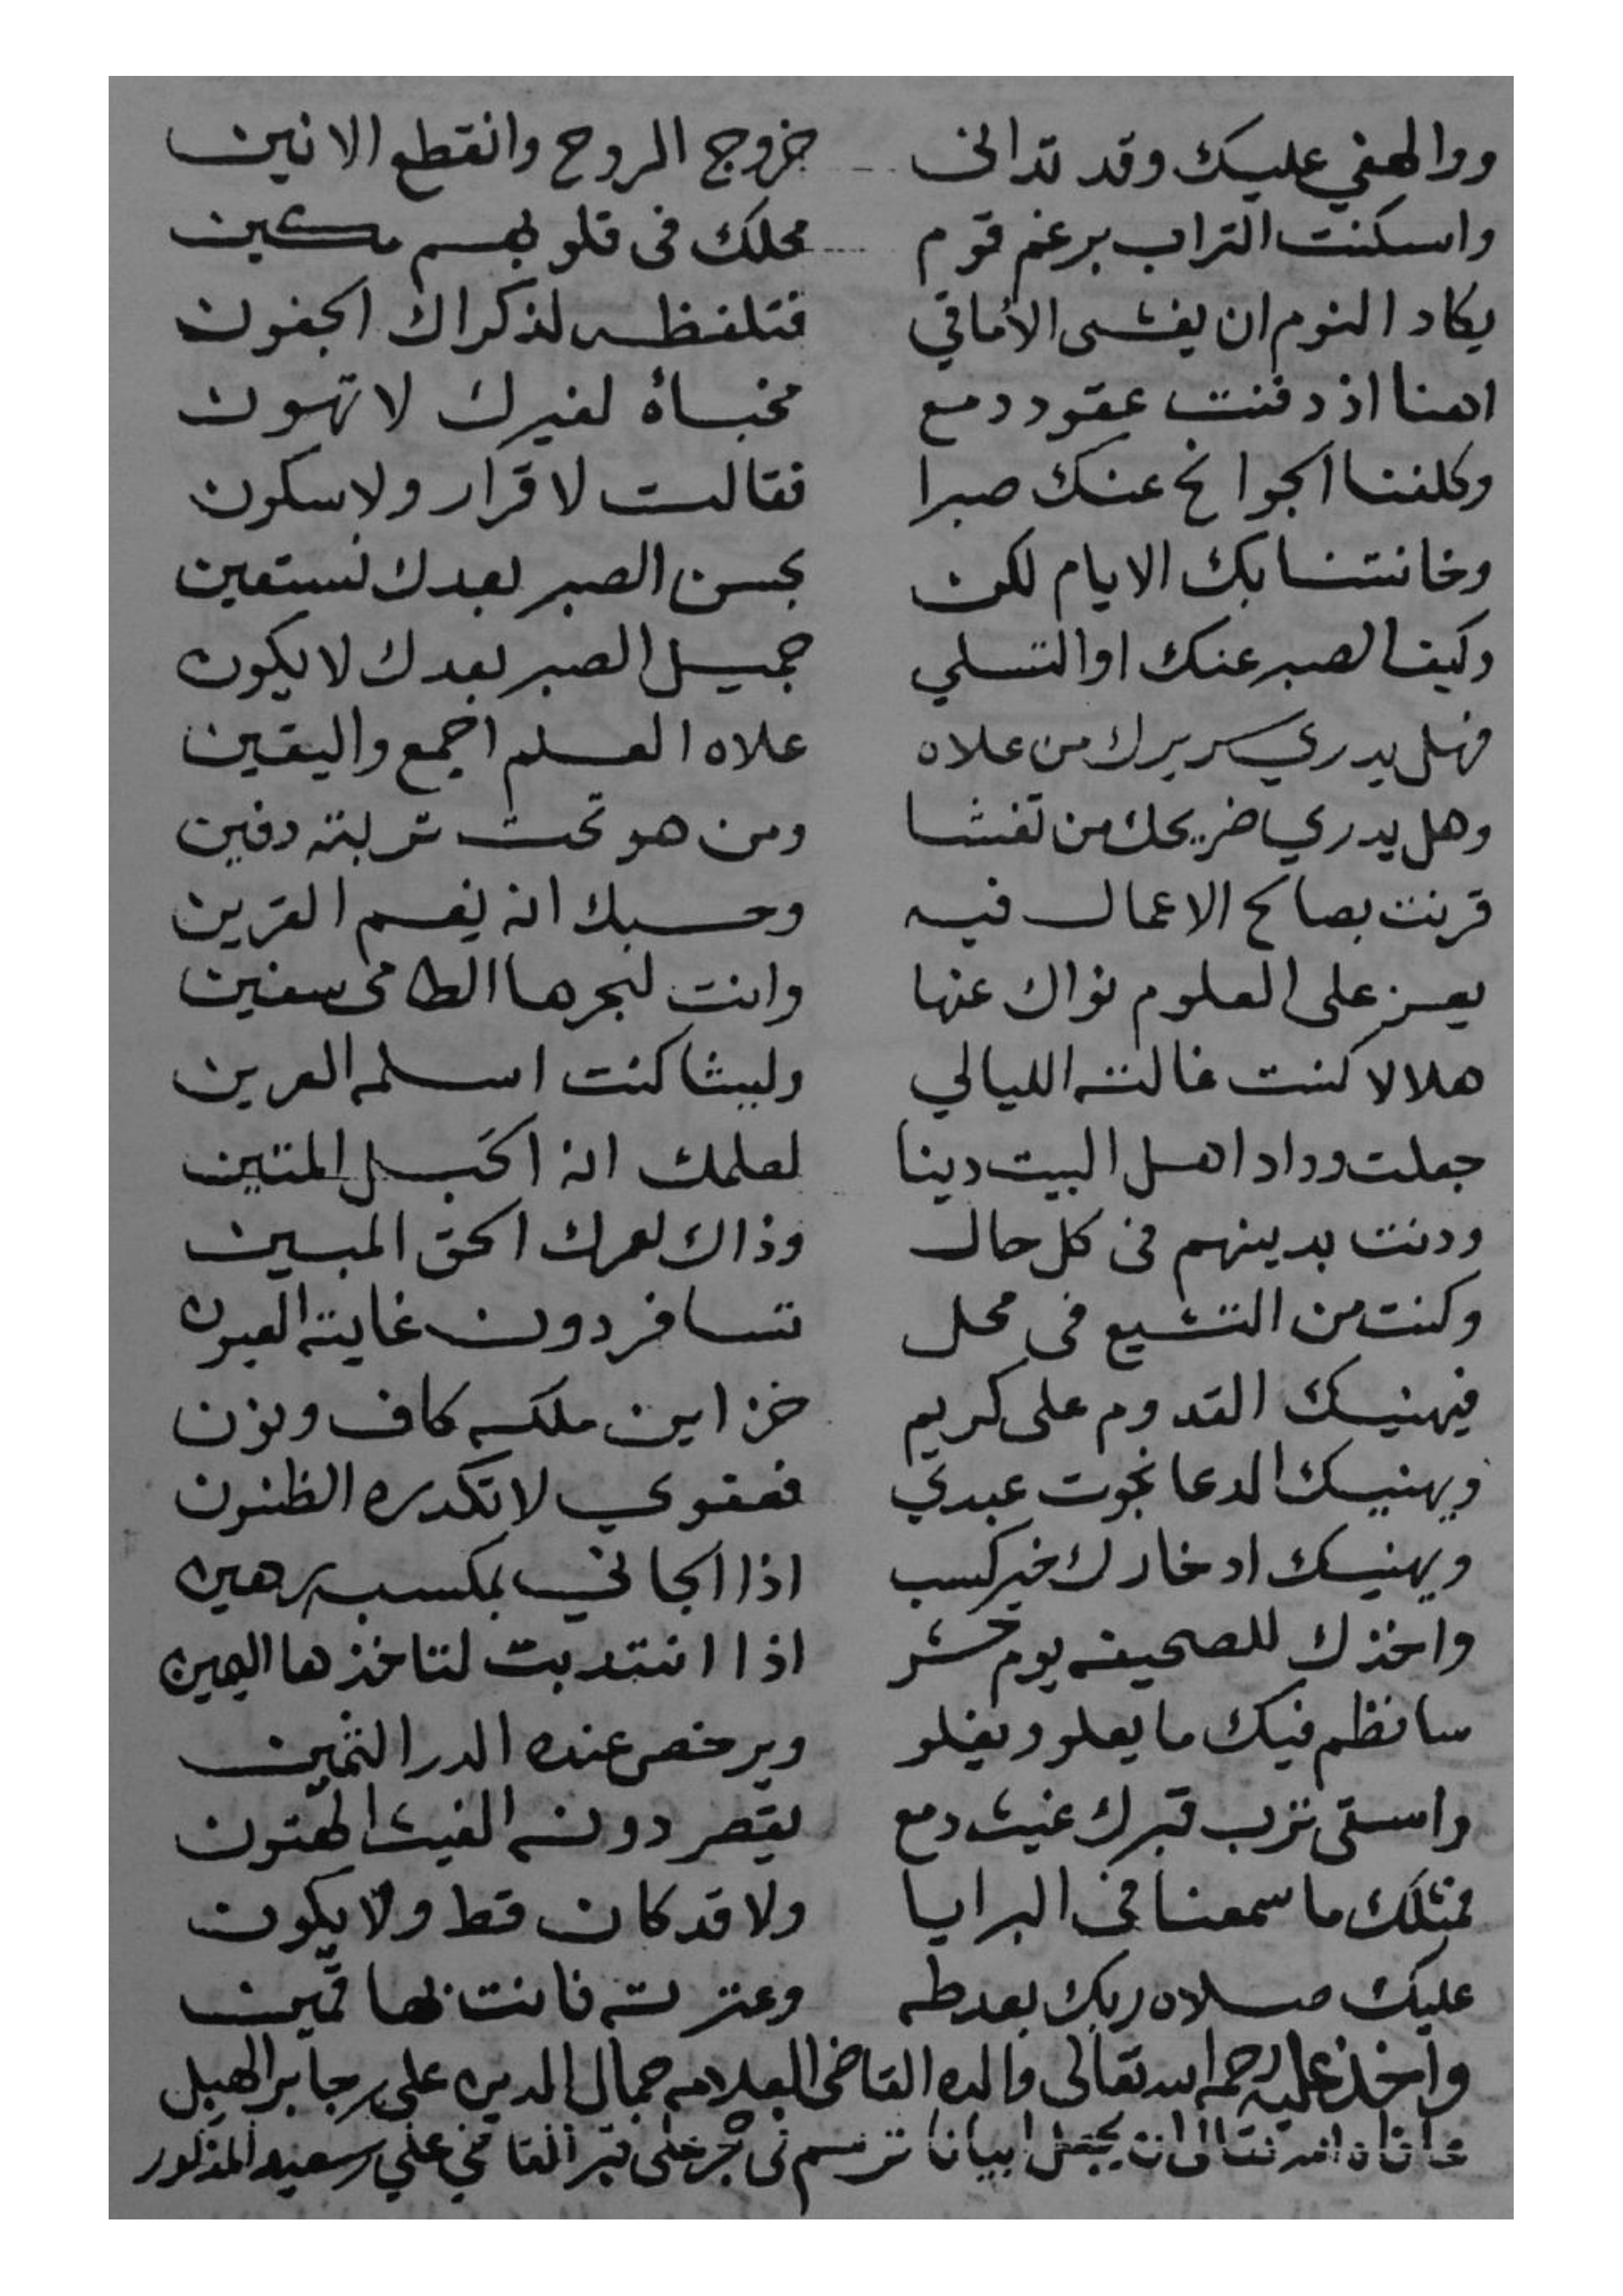 ووالهفي عليك وقد تدانى خروج الروح وانقطع الانين
واسكنت التراب برغم قوم محلك فى قلوبهم مكين
يكاد النوم ان يغشى الأماقي فتلفظه لذكراك الجفون
اهنا اذ دفنت عقود دمع مخبأة لغيرك لا تهون
وكلفنا الجوانح عنك صبرا فقالت لا قرار ولا سكون
وخانتنا بك الايام لكن بحسن الصبر بعدك نستعين
وكيف الصبر عنك او التسلي جميل الصبر بعدك لا يكون
فهل يدري سريرك من علاه علاه العلم اجمع واليقين
وهل يدري ضريحك من تغشا ومن هو تحت تربته دفين
قرنت بصالح الاعمال فيه وحسبك انه نعم القرين
يعز على العلوم نواك عنها وانت لبحرها الطامى سفين
هلالا كنت غالته الليالي وليثا كنت اسلمه العرين
جعلت وداد اهل البيت دينا لعلمك انه الحبل المتين
ودنت بدينهم فى كل حال وذاك لعمرك الحق المبين
وكنت من التشيع فى محل تسافر دون غايته العيون
فيهنيك القدوم على كريم خزاين ملكه كاف ونون
ويهنيك الدعا نجوت عبدي فعفوي لا تكدره الظنون
ويهنيك ادخارك خير كسب اذا الجاني بمكسبه رهين
واخذك للصحيفه يوم حشر اذا انتدبت لتاخذها اليمين
سانظم فيك ما يعلو ويغلو ويرخص عنده الدر الثمين
واسقى ترب قبرك غيث دمع يقصر دونه الغيث الهتون
فمثلك ما سمعنا فى البرايا ولا قد كان قط ولا يكون
عليك صلاه ربك بعد طه وعترته فانت بها قمين
واخذ عليه رحمه الله تعالى والده القاضى العلامه جمال الدين على جابر الهبل
الله تعالى ان يجعل ابياتا ترسم فى حجر على قبر القاضي علي سعيد المذكور